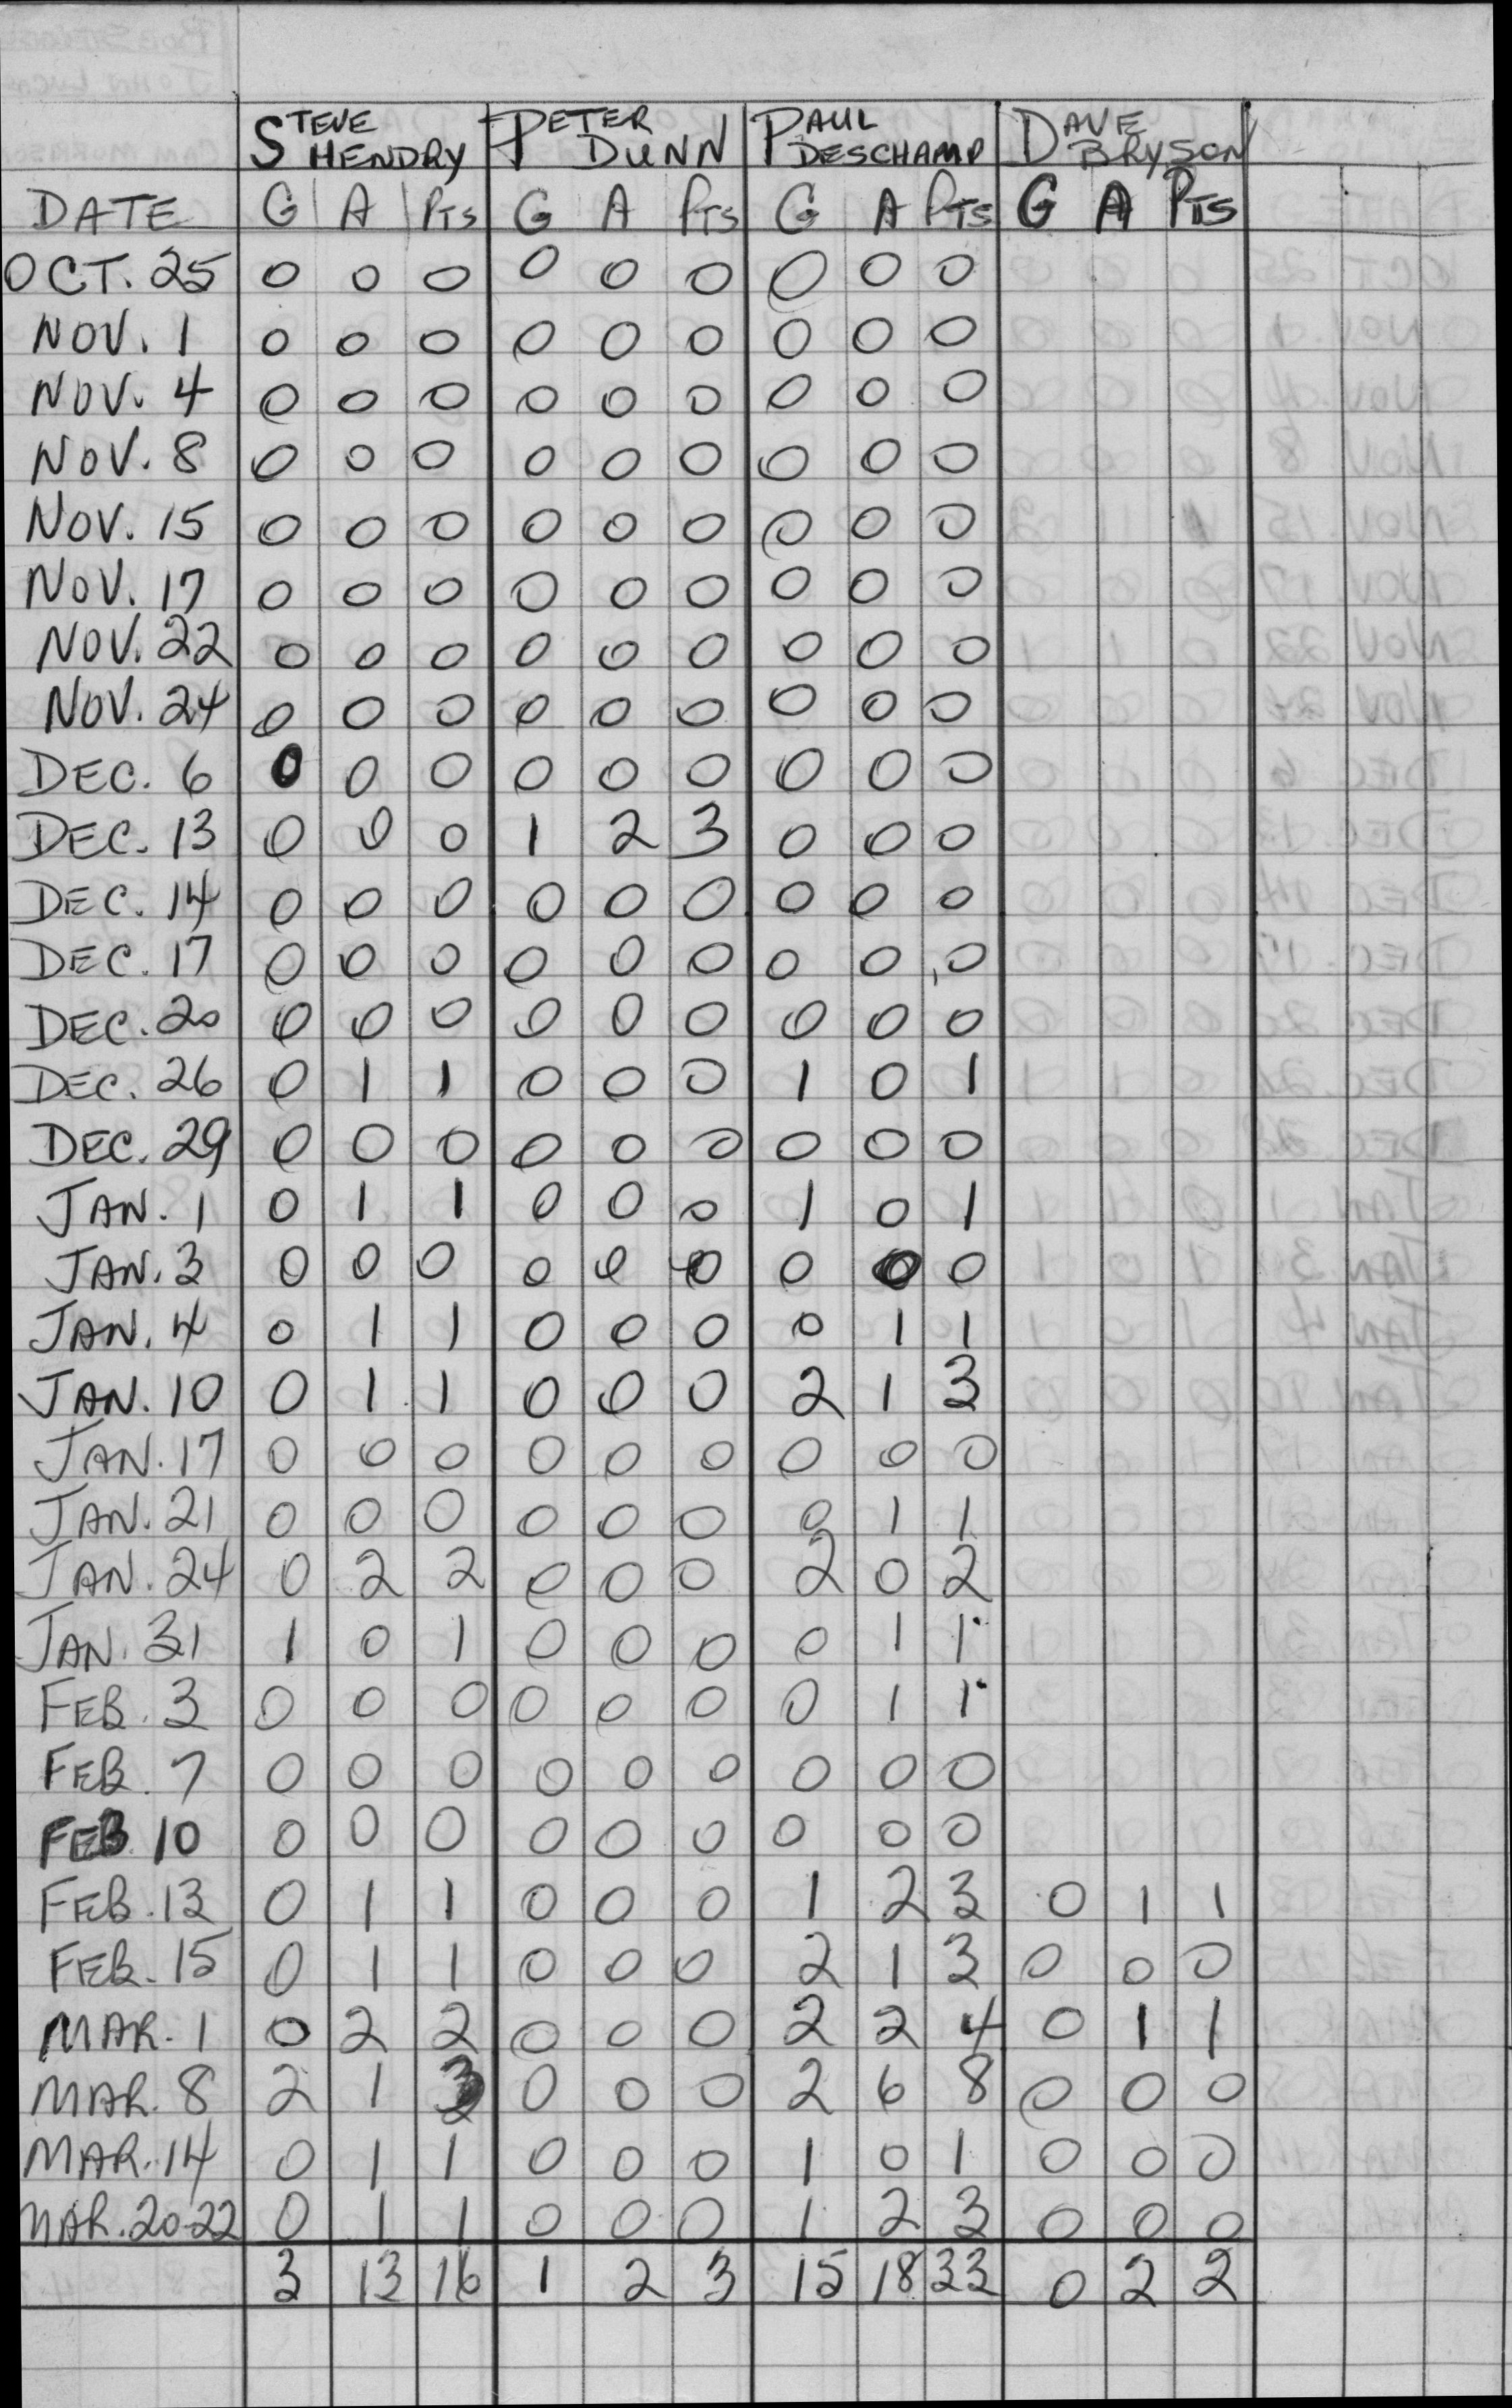 STEVE HENDRY PETER DUNN PAUL DESCHAMP DAVE BRYSON
DATE G A PTS G A PTS G A PTS G A PTS
OCT. 25 0 0 0 0 0 0 0 0 0
NOV. 1 0 0 0 0 0 0 0 0 0
NOV. 4 0 0 0 0 0 0 0 0 0
NOV. 8 0 0 0 0 0 0 0 0 0
NOV. 15 0 0 0 0 0 0 0 0 0
NOV. 17 0 0 0 0 0 0 0 0 0
NOV. 22 0 0 0 0 0 0 0 0 0
NOV. 24 0 0 0 0 0 0 0 0 0
DEC. 6 0 0 0 0 0 0 0 0 0
DEC. 13 0 0 0 1 2 3 0 0 0
DEC. 14 0 0 0 0 0 0 0 0 0
DEC. 17 0 0 0 0 0 0 0 0 0
DEC. 20 0 0 0 0 0 0 0 0 0
DEC. 26 0 1 1 0 0 0 1 0 1
DEC. 29 0 0 0 0 0 0 0 0 0
JAN. 1 0 1 1 0 0 0 1 0 1
JAN. 3 0 0 0 0 0 0 0 0 0
JAN. 4 0 1 1 0 0 0 0 1 1
JAN. 10 0 1 1 0 0 0 2 1 3
JAN. 17 0 0 0 0 0 0 0 0 0
JAN. 21 0 0 0 0 0 0 0 1 1
JAN. 24 0 2 2 0 0 0 2 0 2
JAN. 31 1 0 1 0 0 0 0 1 1
FEB. 3 0 0 0 0 0 0 0 1 1
FEB. 7 0 0 0 0 0 0 0 0 0
FEB 10 0 0 0 0 0 0 0 0 0
FEB. 13 0 1 1 0 0 0 1 2 3 0 1 1
FEB. 15 0 1 1 0 0 0 2 1 3 0 0 0
MAR. 1 0 2 2 0 0 0 2 2 4 0 1 1
MAR. 8 2 1 3 0 0 0 2 6 8 0 0 0
MAR. 14 0 1 1 0 0 0 1 0 1 0 0 0
MAR. 20-22 0 1 1 0 0 0 1 2 3 0 0 0
3 13 16 1 2 3 15 18 33 0 2 2